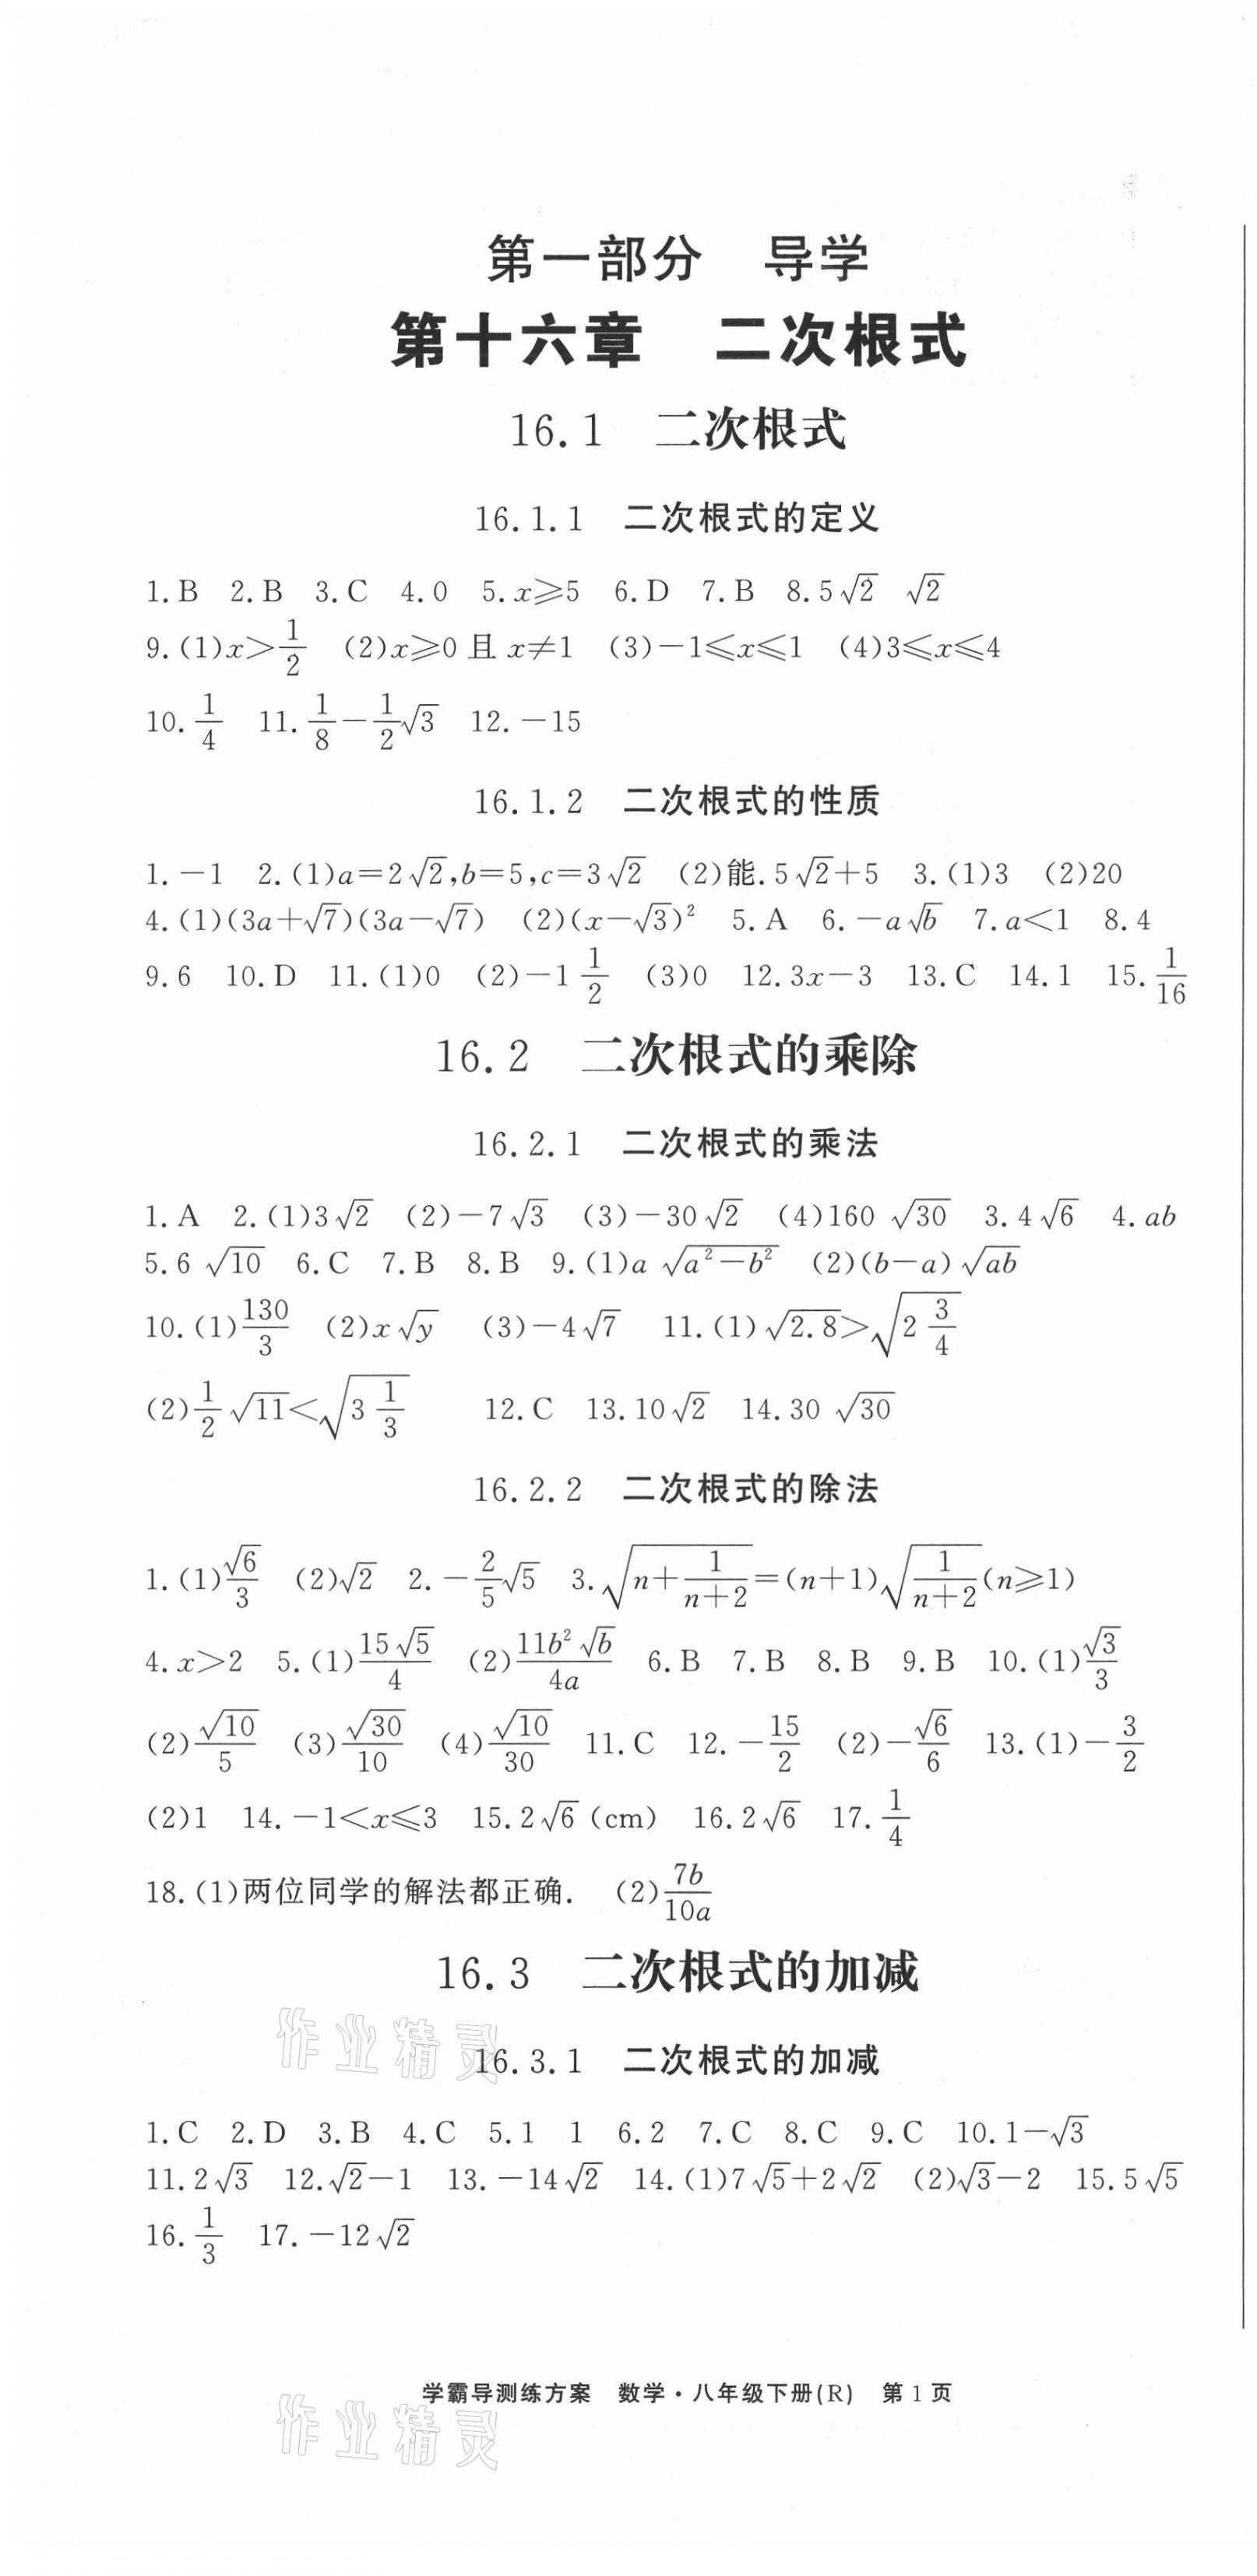 第一部分 导学
第十六章 二次根式
16.1 二次根式
16.1.1 二次根式的定义
1.B 2.B 3.C 4.0 5.x⩾5 6.D 7.B 8.5√2 √2
9.(1)x>1/2 (2)x⩾0且x≠1 (3)-1⩽x⩽1 (4)3⩽x⩽4
10.1/4 11.1/8-1/2√3 12.-15
16.1.2 二次根式的性质
1.-1 2.(1)a=2√2,b=5,c=3√2 (2)能.5√2+5 3.(1)3 (2)20
4.(1)(3a+√7)(3a-√7) (2)(x-√3)² 5.A 6.-a√b 7.a<1 8.4
9.6 10.D 11.(1)0 (2)-1 1/2 (3)0 12.3x-3 13.C 14.1 15.1/16
16.2 二次根式的乘除
16.2.1 二次根式的乘法
1.A 2.(1)3√2 (2)-7√3 (3)-30√2 (4)160√30 3.4√6 4.ab
5.6√10 6.C 7.B 8.B 9.(1)a√(a²-b²) (2)(b-a)√(ab)
10.(1)130/3 (2)x√y (3)-4√7 11.(1)√2.8>√(2 3/4)
(2)1/2√11<√(3 1/3) 12.C 13.10√2 14.30√30
16.2.2 二次根式的除法
1.(1)√6/3 (2)√2 2.-2/5√5 3.√(n+1/(n+2))=(n+1)√(1/(n+2))(n⩾1)
4.x>2 5.(1)15√5/4 (2)11b²√b/4a 6.B 7.B 8.B 9.B 10.(1)√3/3
(2)√10/5 (3)√30/10 (4)√10/30 11.C 12.-15/2 (2)-√6/6 13.(1)-3/2
(2)1 14.-1<x⩽3 15.2√6(cm) 16.2√6 17.1/4
18.(1)两位同学的解法都正确. (2)7b/10a
16.3 二次根式的加减
作业精灵
16.3.1 二次根式的加减
1.C 2.D 3.B 4.C 5.1 1 6.2 7.C 8.C 9.C 10.1-√3
11.2√3 12.√2-1 13.-14√2 14.(1)7√5+2√2 (2)√3-2 15.5√5
16.1/3 17.-12√2
学霸导测练方案 数学·八年级下册(R) 第1页
作业精灵